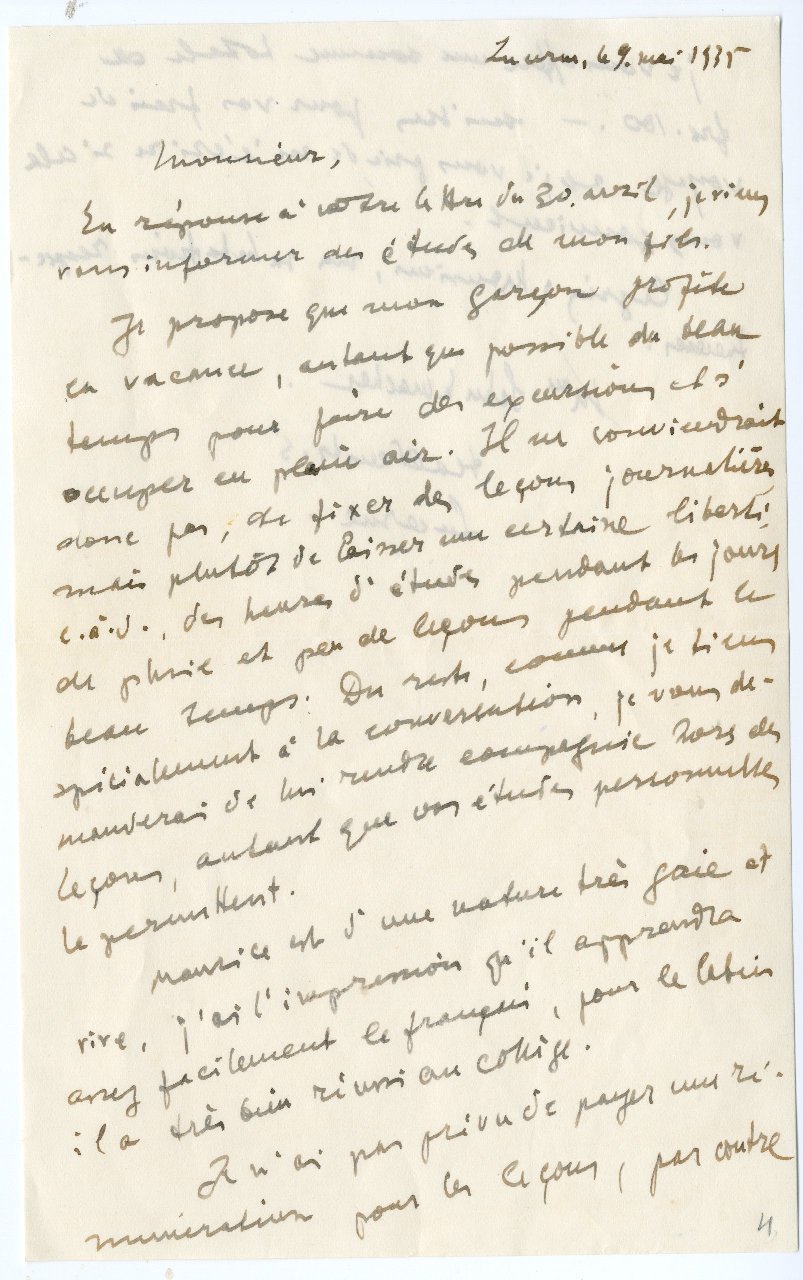 Lucerne, le 9. mai 1935
Monsieur,
En réponse à votre lettre du 30. avril, je viens
vous informer des études de mon fils.
Je propose que mon garçon profite
en vacance, autant que possible du beau
temps pour faire des excursions et s'
occuper en plein air. Il ne conviendrait
donc pas, de fixer des leçons journalières
mais plutôt de laisser une certaine liberté,
c.à.d., des heures d'études pendant les jours
de pluie et peu de leçons pendant le
beau temps. Du reste, comme je tiens
spécialement à la conversation, je vous de-
manderai de lui rendre compagnie hors des
leçons, autant que vos études personnelles
le permettent.
Maurice est d'une nature très gaie et
vive, j'ai l'impression qu'il apprendra
assez facilement le français, pour le latin
il a très bien réussi au collège.
Je n'ai pas prévu de payer une ré-
munération pour les leçons, par contre
4